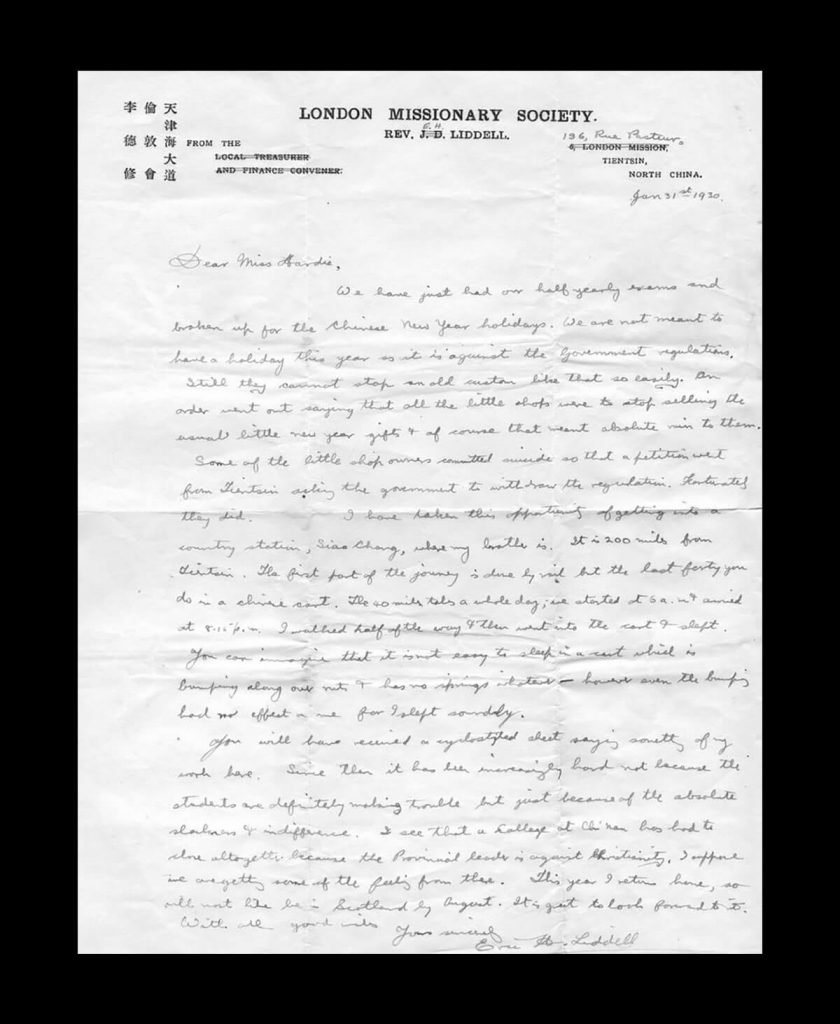 天津海大道
倫敦會
李德修
LONDON MISSIONARY SOCIETY.
E. H.
REV. J. D. LIDDELL.
FROM THE
LOCAL TREASURER
AND FINANCE CONVENER.
196, Rue Pasteur,
6, LONDON MISSION,
TIENTSIN,
NORTH CHINA.
Jan 31st 1930.
Dear Miss Hardie,
We have just had our half yearly exams and
broken up for the Chinese New Year holidays. We are not meant to
have a holiday this year as it is against the Government regulations.
Still they cannot stop an old custom like that so easily. An
order went out saying that all the little shops were to stop selling the
usual little new year gifts & of course that meant absolute ruin to them.
Some of the little shop owners committed suicide so that a petition went
from Tientsin asking the government to withdraw the regulation. Fortunately
they did. I have taken this opportunity of getting into a
country station, Siao Chang, where my brother is. It is 200 miles from
Tientsin. The first part of the journey is done by rail but the last forty you
do in a chinese cart. The 40 miles takes a whole day; we started at 6 a.m & arrived
at 8.15 p.m. I walked half of the way & then went into the cart & slept.
You can imagine that it is not easy to sleep in a cart which is
bumping along over ruts & has no springs whatever — however even the bumping
had no effect on me for I slept soundly.
You will have received a cyclostyled sheet saying something of my
work here. Since then it has been increasingly hard not because the
students are definitely making trouble but just because of the absolute
slackness & indifference. I see that a College at has had to
close altogether because the Provincial leader is against Christianity. I suppose
we are getting some of the feeling from there. This year I return home, so
will most like be in Scotland by August. It is great to look forward to it.
With all good wishes Yours sincerely
Eric H. Liddell